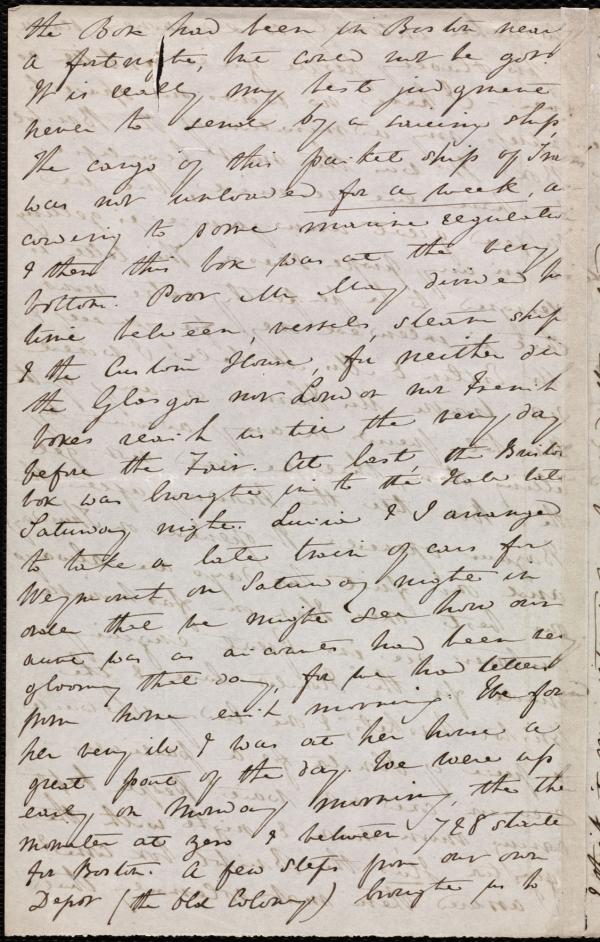 the Box had been in Boston near
a fortnight, we could not be got
It is really my best judgment
never to send by a sailing ship,
The cargo of this packet ship of
was not unloaded for a week, a
cording to some marine regulatio
& then this box was at the very
bottom. Poor Mr May divided h
time between, vessels, steam ship
& the Custom House, for neither di
the Glasgow nor London nor French
boxes reach us till the very day
before the Fair. At last, the Bristol
box was brought in to the Hall late
Saturday night. Louisa & I arranged
to take a late train of cars for
Weymouth on Saturday night in
order that we might see how our
aunt was as accounts had been very
gloomy that day, for we had letters
from home each morning. We found
her very ill & I was at her house a
great part of the day. We were up
early on Monday morning, the ther
mometer at zero & between 7 & 8 started
for Boston. A few steps from our own
Depot (the Old Colony) brought us to